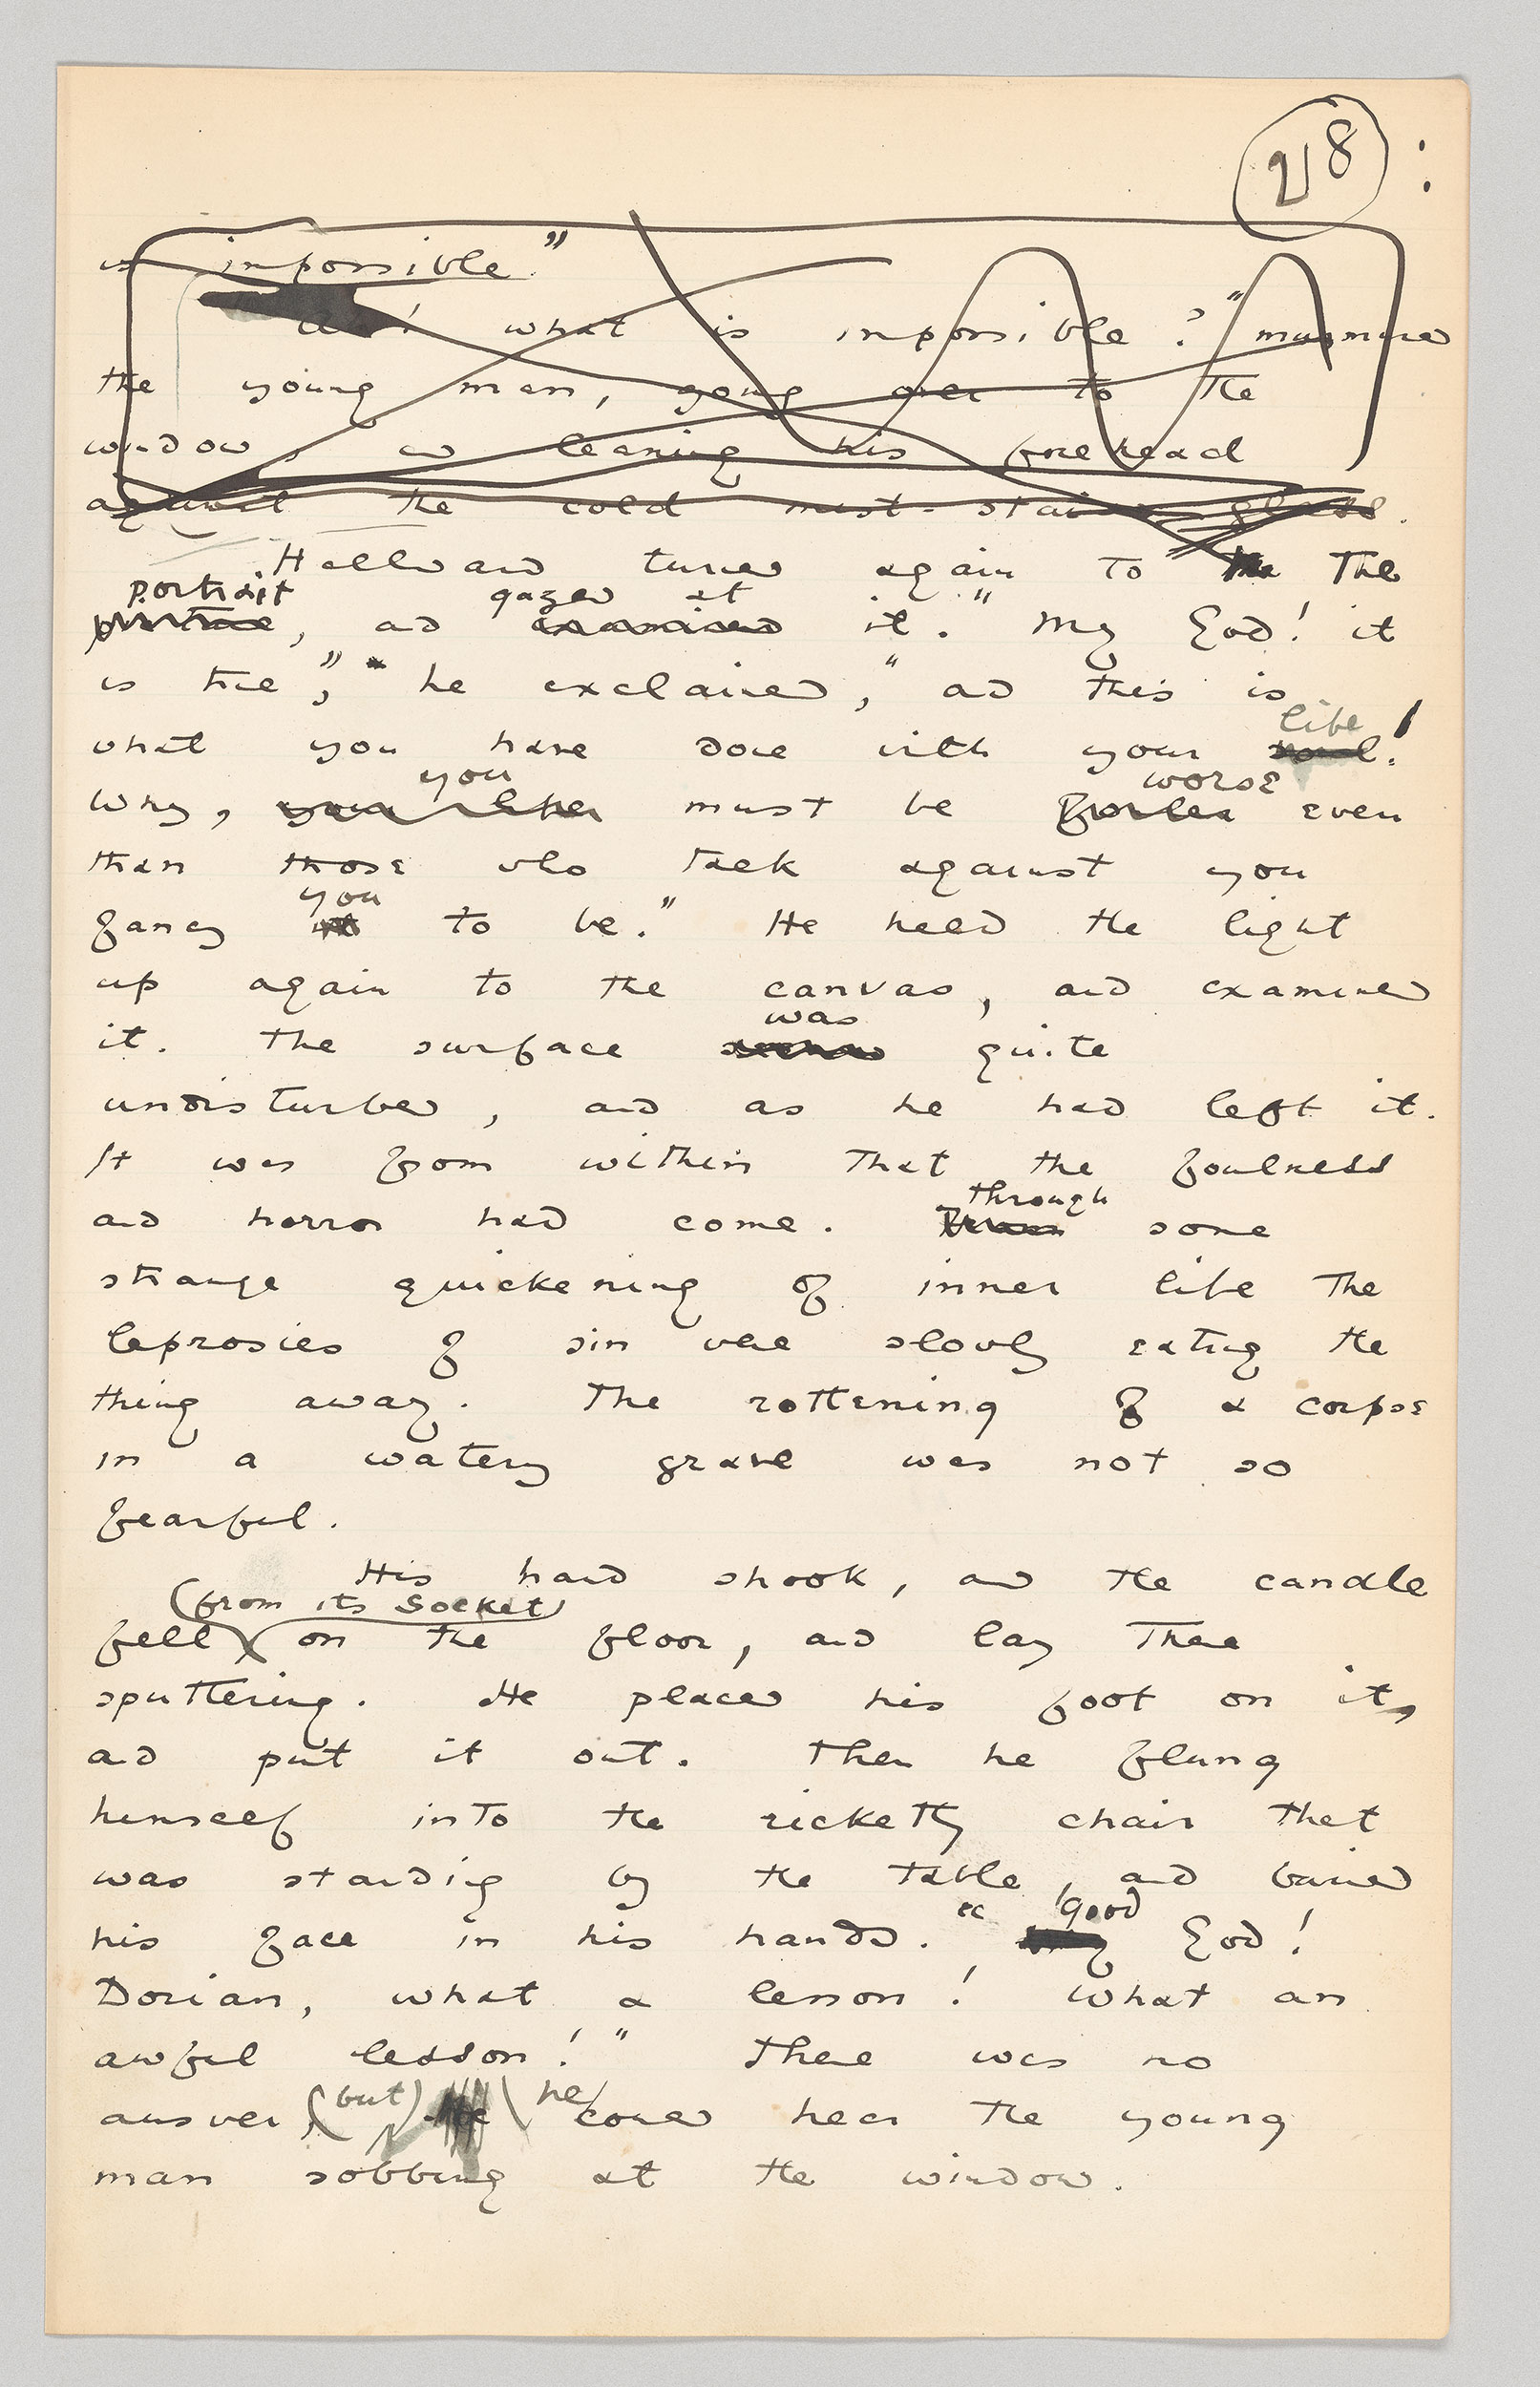 218 :
is impossible."
"Ah! what is impossible?" murmured
the young man, going over to the
window, and leaning his forehead
against the cold mist-stained glass.
Hallward turned again to the
portrait gazed at
picture, and examined it. "My God! it
is true," he exclaimed, "and this is
life!
what you have done with your soul!
you worse
Why, your life must be fouler even
than those who talk against you
you
fancy it to be." He held the light
up again to the canvas, and examined
was
it. The surface seemed quite
undisturbed, and as he had left it.
It was from within that the foulness
through
and horror had come. some
strange quickening of inner life the
leprosies of sin were slowly eating the
thing away. The rottening of a corpse
in a watery grave was not so
fearful.
His hand shook, and the candle
(from its socket)
fell on the floor, and lay there
sputtering. He placed his foot on it,
and put it out. Then he flung
himself into the ricketty chair that
was standing by the table, and buried
Good
his face in his hands. "My God!
Dorian, what a lesson! What an
awful lesson!" There was no
(but) he
answer, could hear the young
man sobbing at the window.